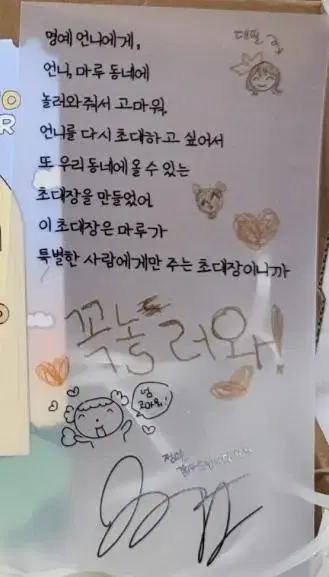 명예 언니에게,
대필
언니, 마루 동네에
놀러와줘서 고마워.
언니를 다시 초대하고 싶어서
또 우리동네에 올 수 있는
초대장을 만들었어.
이 초대장은 마루가
특별한 사람에게만 주는 초대장이니까
꼭 놀러와!
넘
고마워!